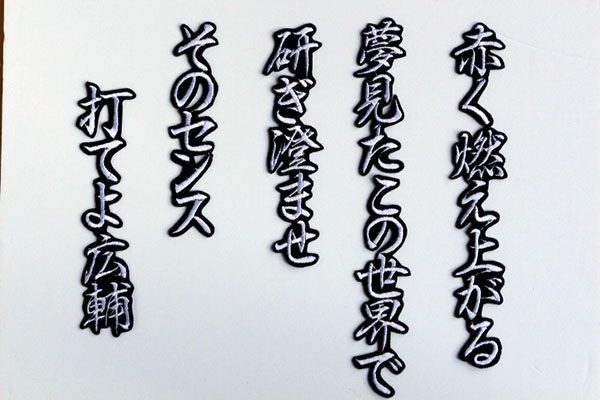 赤く燃え上がる
夢見たこの世界で
研ぎ澄ませ
そのセンス
打てよ広輔